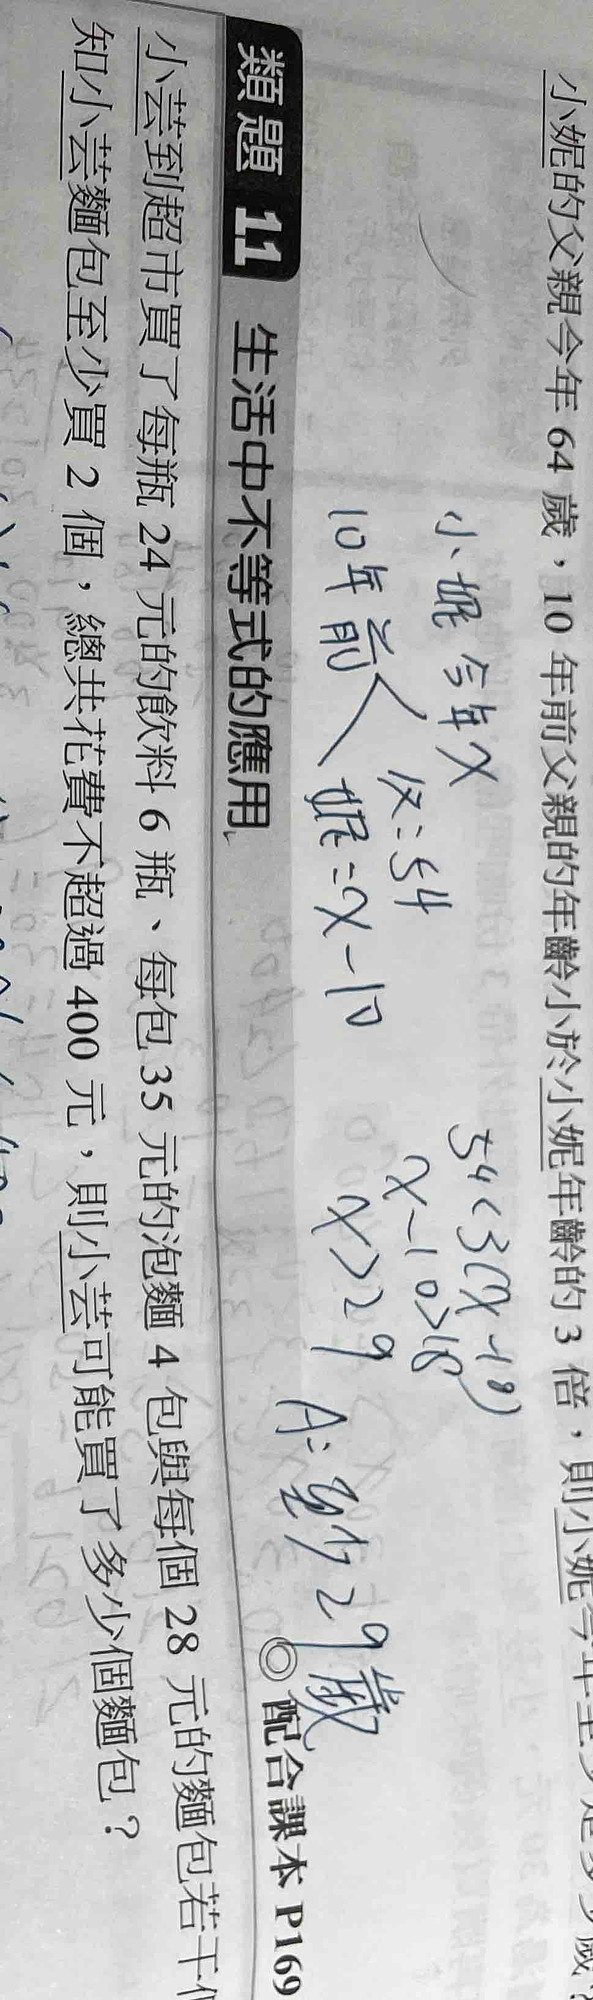 小妮的父親今年 64 歲，10 年前父親的年齡小於小妮年齡的 3 倍，則小妮今年至少是多少歲？
小妮今年x
10年前
父：54
妮=x-10
54<3(x-10)
x-10>18
x>29
A：至少29歲
類題 11 生活中不等式的應用
◎配合課本 P169
小芸到超市買了每瓶 24 元的飲料 6 瓶、每包 35 元的泡麵 4 包與每個 28 元的麵包若干
知小芸麵包至少買 2 個，總共花費不超過 400 元，則小芸可能買了多少個麵包？